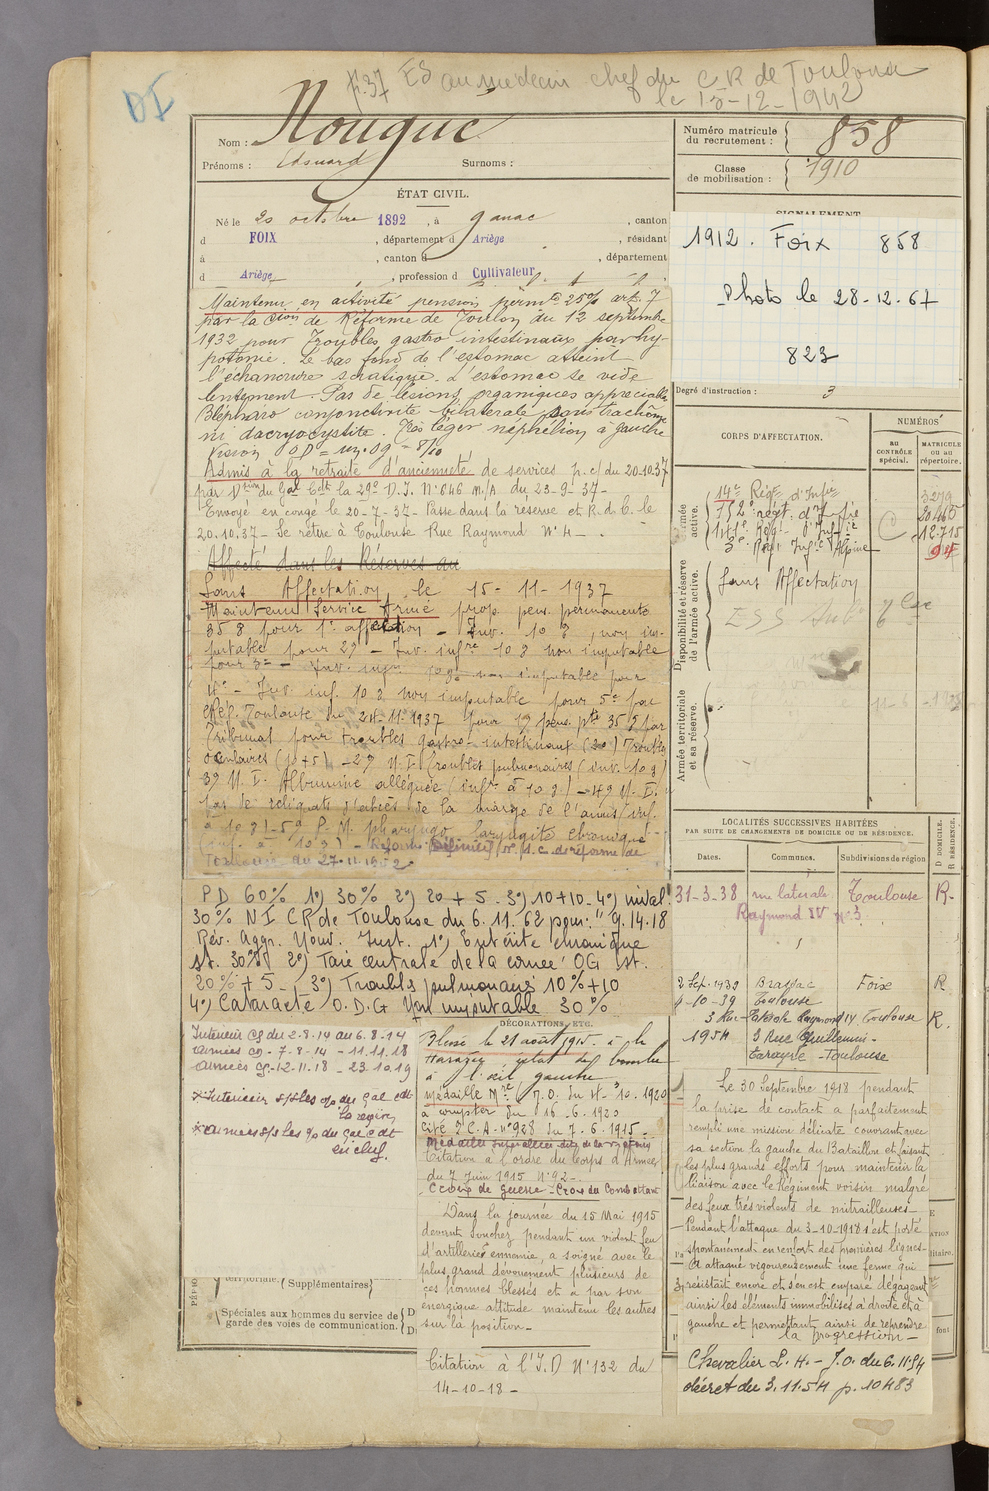 DI
F.37 ES au médecin chef du C R de Toulouse
le 15-12-1942
Nom : Nougué
Prénoms : Edouard Surnoms :
Numéro matricule
du recrutement : 858
Classe
de mobilisation : 1910
ÉTAT CIVIL.
Né le 20 octobre 1892, à Ganac, canton
d FOIX, département d Ariège, résidant
à , canton d , département
d Ariège, profession d Cultivateur
SIGNALEMENT
1912. Foix 858
Photo le 28-12-67
823
Degré d'instruction : 3
Maintenu en activité pension permte 25% art. 7
par la Cion de Réforme de Toulon du 12 septembre
1932 pour Troubles gastro intestinaux par hy-
potonie. Le bas fond de l'estomac atteint
l'échancrure sciatique. L'estomac se vide
lentement. Pas de lésions organiques appréciables
Blépharo conjonctivite bilatérale sans trachôme
ni dacryocystite. Très léger néphélion à gauche
Vision OD = un. OG = 8/10
Admis à la retraite d'ancienneté de services p.c/du 20.10.37
par Dsion du Gal Cdt la 29e D.I. N°646 M/A du 23-9-37-
Envoyé en congé le 20-7-37- Passe dans la réserve et R.d.C. le
20.10.37- Se retire à Toulouse Rue Raymond N° 4 -
Affecté dans les Réserves au
Sans Affectation, le 15-11-1937
Maintenu Service Armé prop. pens. permanente
35 % pour 1° affection - Inv. 10 % non im-
putable pour 2° - Inv. infre 10 % non imputable
pour 3° - Inv. infre 10% non imputable pour
4° - Inv. inf. 10 % non imputable pour 5° par
Réf. Toulouse du 24-11-1937 pour 1°/ pens. pte 35 % par
Tribunal pour troubles gastro-intestinaux (20) Troubles
oculaires (10+5) - 2°/ N.I. Troubles pulmonaires (inv. 10 %)
3°/ N.I. Albumine alléguée (infre à 10 %) - 4°/ N.I.
Pas de reliquats d'abcès de la marge de l'anus (inf.
à 10 %) - 5°/ P.M. pharyngo laryngite chronique
(inf. à 10 %) - Réforme Définitive n° 1.C. de réforme de
Toulouse du 27-11-1952
PD 60% 1°) 30% 2°) 20+5. 3°) 10+10. 4°) inval.
30% NI CR de Toulouse du 6.11.62 pour : "g. 14.18
Rév. Aggr. Nouv. Inst. 1°) Entérite chronique
st. 30% 2°) Taie centrale de la cornée OG st.
20% + 5 - 3°) Troubles pulmonaires 10%+10
4°) Cataracte O.D.G Non imputable 30%
CORPS D'AFFECTATION.
NUMÉROS
AU
CONTRÔLE
spécial.
MATRICULE
OU AU
répertoire.
Armée
active.
14e Régt d'Infie 3279
152e régt d'Infie 20460
Régt d'Infie 12.715
3e Régt Infie Alpine 94
C
Disponibilité et réserve
de l'armée active.
Sans Affectation
E S S Sub
Armée territoriale
et sa réserve.
LOCALITÉS SUCCESSIVES HABITÉES
PAR SUITE DE CHANGEMENTS DE DOMICILE OU DE RÉSIDENCE.
Dates. Communes. Subdivisions de région
D DOMICILE.
R RÉSIDENCE.
31-3-38 rue latérale Toulouse R.
Raymond IV n°3
2 Sep. 1939 Brassac Foix R
4-10-39 Toulouse
3 Rue Latérale Raymond IV Toulouse R.
1954 3 Rue Guillemin-
Tarayre - Toulouse
Intérieur CS du 2-8-14 au 6.8-14
Armées CS - 7-8-14 - 11.11.18
Armées CS - 12-11.18 - 23.10.19
* Intérieur s/s les o/ du Gal Cdt
la région
* Armées s/s les o/ du Gal Cdt
en chef.
DÉCORATIONS, ETC.
Blessé le 21 août 1915 - à la
Harazée éclat de bombe
à l'œil gauche
médaille Mre (J.O. du 4-10-1920
à compter du 16-6-1920
Cité O.C.A. n°928 du 7.6.1915.
Médaille Interalliée dite de la Victoire
Citation à l'ordre du Corps d'Armée
du 7 Juin 1915 N°92-
Croix de guerre - Croix du Combattant
Dans la journée du 15 Mai 1915
devant Souchez pendant un violent feu
d'artillerie ennemie, a soigné avec le
plus grand dévouement plusieurs de
ces hommes blessés et a par son
énergique attitude maintenu les autres
sur la position-
Citation à l'I.D N°132 du
14-10-18-
Le 30 Septembre 1918 pendant
la prise de contact a parfaitement
rempli une mission délicate couvrant avec
sa section la gauche du Bataillon et faisant
les plus grands efforts pour maintenir la
liaison avec le Régiment voisin malgré
des feux très violents de mitrailleuses-
Pendant l'attaque du 3-10-1918 s'est porté
spontanément en renfort des premières lignes-
A attaqué vigoureusement une ferme qui
résistait encore et s'en est emparé dégageant
ainsi les éléments immobilisés à droite et à
gauche et permettant ainsi de reprendre
la progression-
Chevalier L.H.- J.O. du 6.11.54
décret du 3.11.54 p. 10483
territoriale. (Supplémentaires)
Spéciales aux hommes du service de
garde des voies de communication.